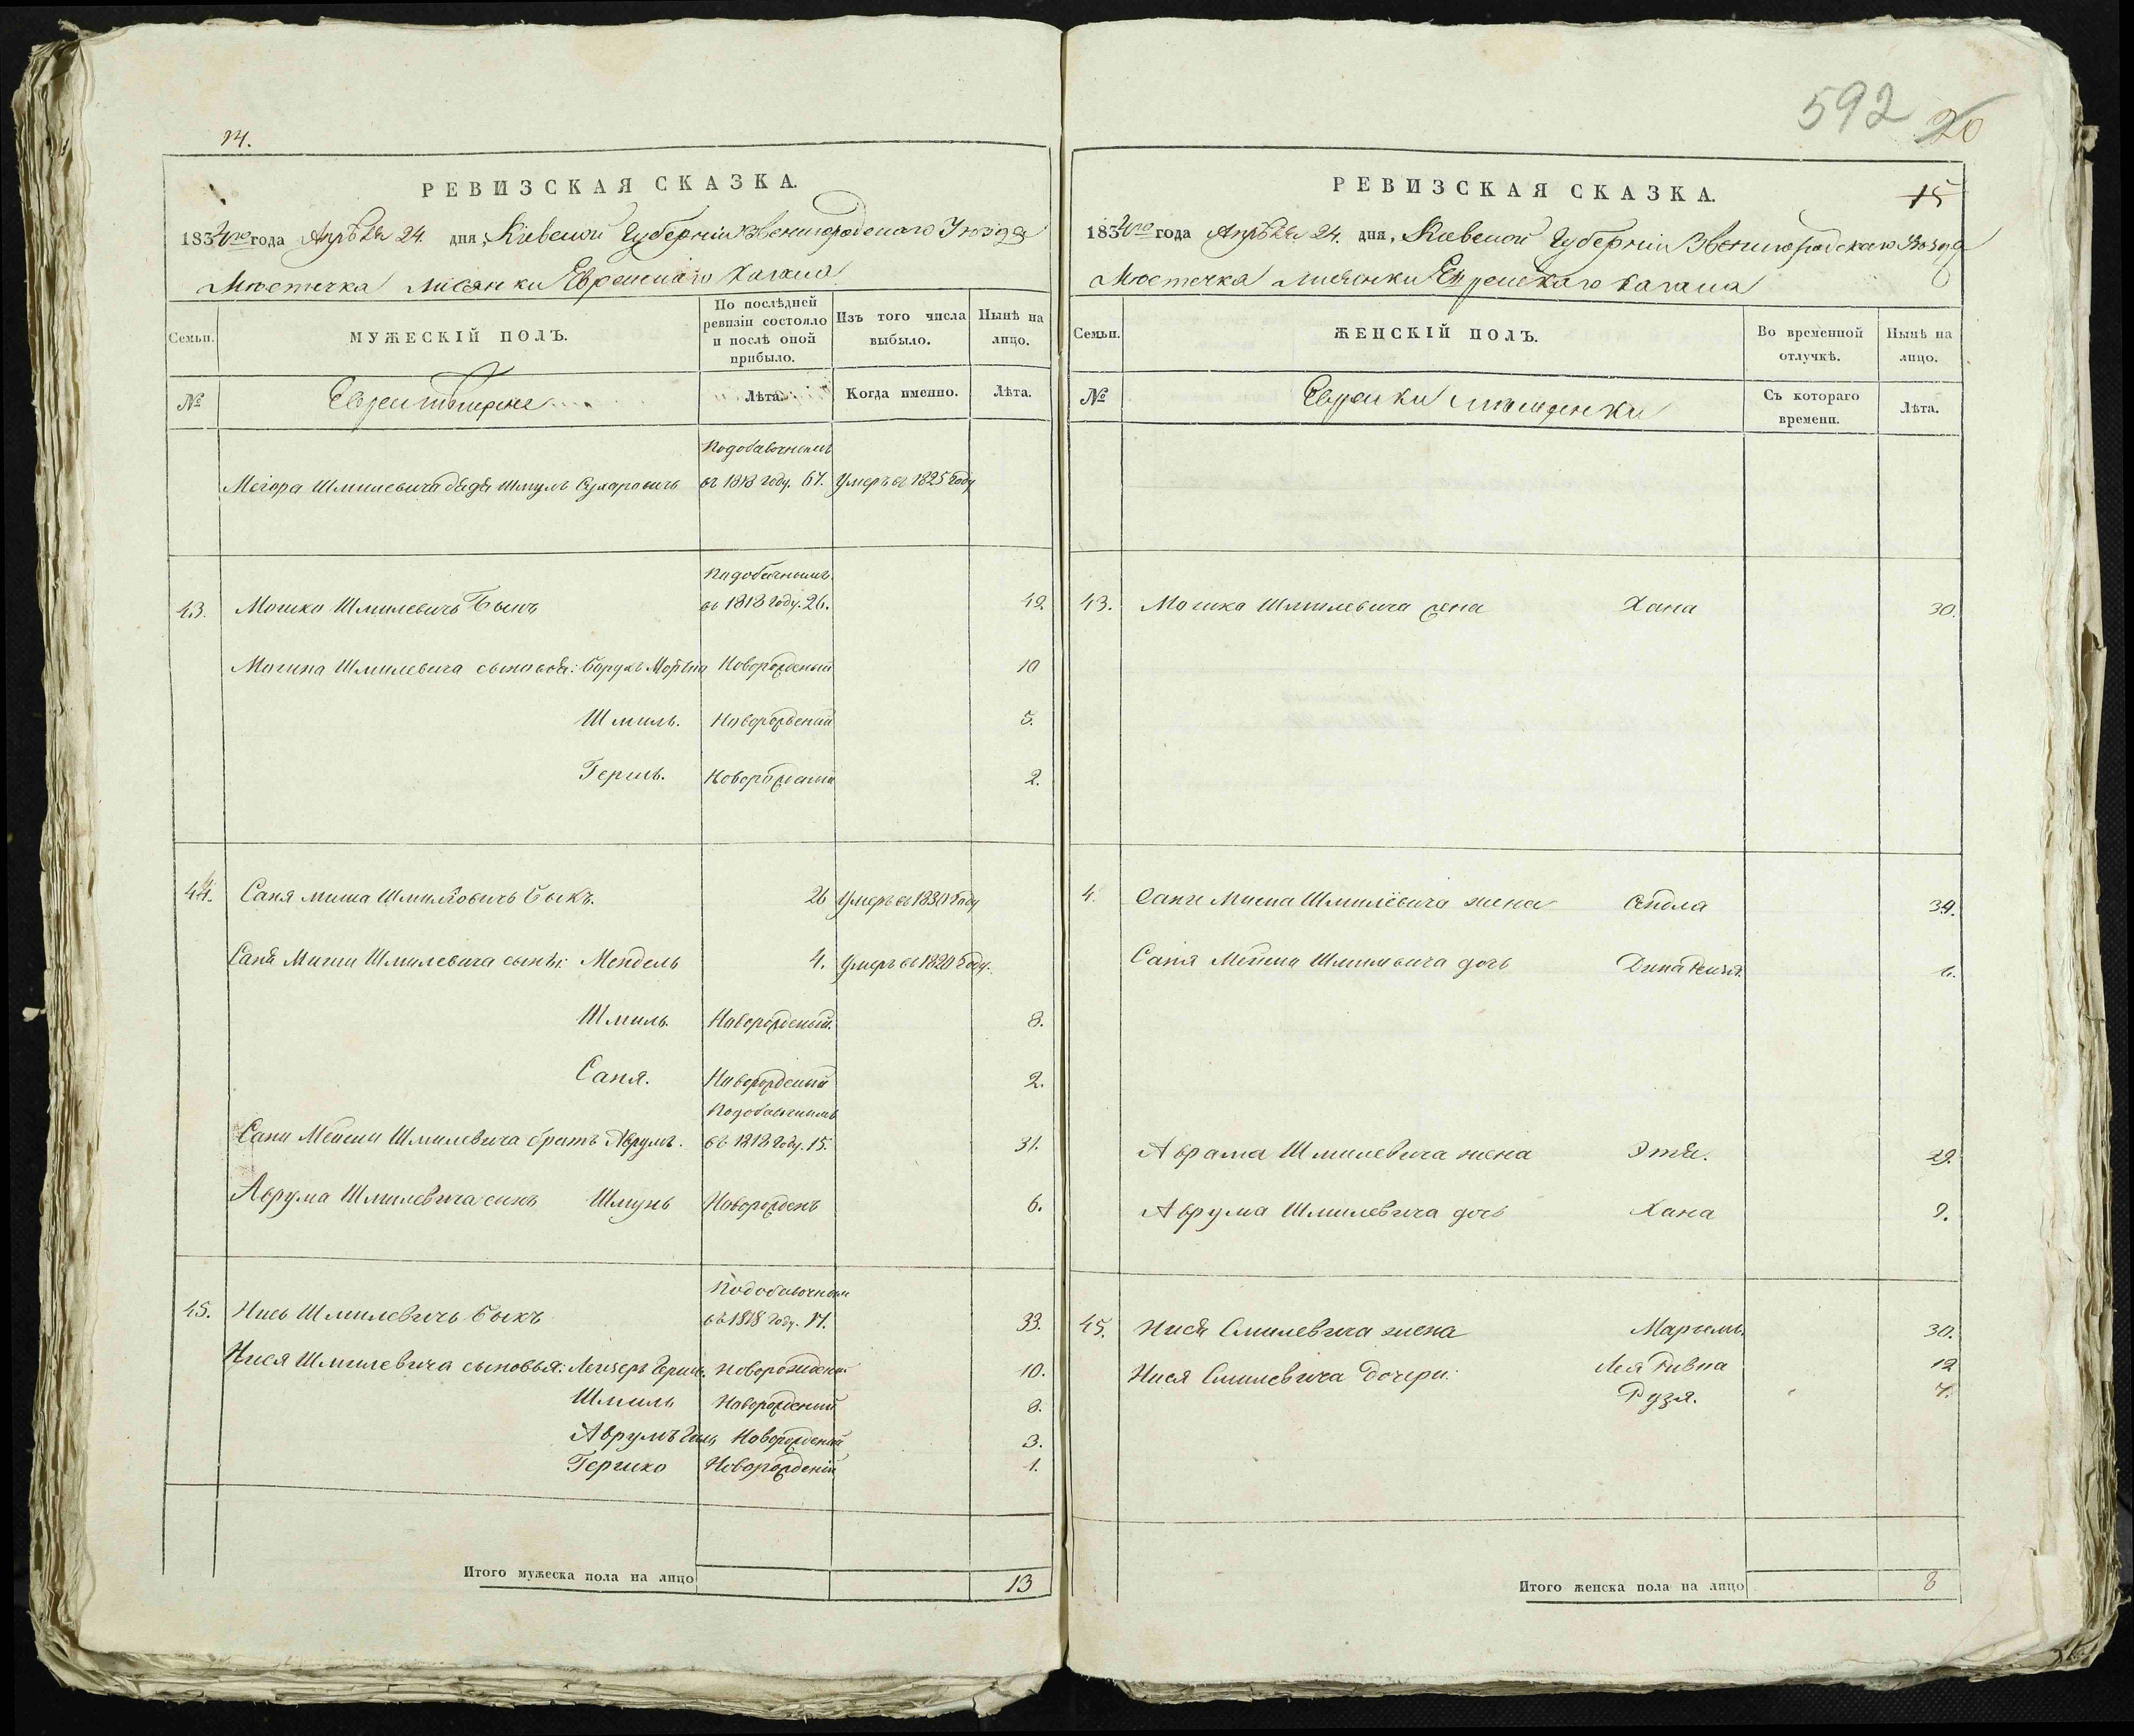 14.
РЕВИЗСКАЯ СКАЗКА.
1834го года Апрѣля 24. дня, Кіевской Губерніи Звенигородскаго Уѣзда
Мѣстечка Лисянки Еврейскаго Кагала
Семьи.
МУЖЕСКІЙ ПОЛЪ.
По послѣдней ревизіи состояло и послѣ оной прибыло.
Изъ того числа выбыло.
Нынѣ на лицо.
№
Евреи мѣщане
Лѣта.
Когда именно.
Лѣта.
Подобавочнымъ
Шмилевича дядя Шмуль въ 1818 году. 67. Умеръ въ 1825 году
Подобавочнымъ
43. Мошко Шмилевичъ Быкъ въ 1818 году. 26. 42.
Шмилевича сыновья: Борухъ Новорожденый 10
Шмиль. Новорожденый 5.
Гершъ. Новорожденый 2.
44. Саня Шмилевичъ Быкъ. 26 Умеръ въ 1830 году
Шмилевича сынъ: Мендель 4. Умеръ въ 1820 году.
Шмиль Новорожденый. 8.
Саня. Новорожденый 2.
Подобавочнымъ
Сани Шмилевича братъ Аврумъ. въ 1818 году. 15. 31.
Аврума Шмилевича сынъ Шмунь Новорожденъ 6.
Подобавочнымъ
45. Нись Шмилевичъ Быкъ въ 1818 году. 17. 33.
Нися Шмилевича сыновья: Лейзеръ Новорожденый 10.
Шмиль Новорожденый 8.
Аврумъ Новорожденый 3.
Гершко Новорожденій 1.
Итого мужеска пола на лицо 13
592 20
РЕВИЗСКАЯ СКАЗКА. 15
1834го года Апрѣля 24. дня, Кіевской Губерніи Звенигородскаго Уѣзда
Мѣстечка Лисянки Еврейскаго Кагала
Семьи.
ЖЕНСКІЙ ПОЛЪ.
Во временной отлучкѣ.
Нынѣ на лицо.
№
Еврейки мѣщанки
Съ котораго времени.
Лѣта.
43. Мошка Шмилевича жена Хана 30.
4. Шмилевича жена 34.
Саня Шмилевича дочь Дина 6.
Аврама Шмилевича жена Этя. 29.
Аврума Шмилевича дочь Хана 9.
45. Нися Смилевича жена Марьемъ. 30.
Нися Смилевича дочери: Лея Ривка 12
Рузя. 7.
Итого женска пола на лицо 8